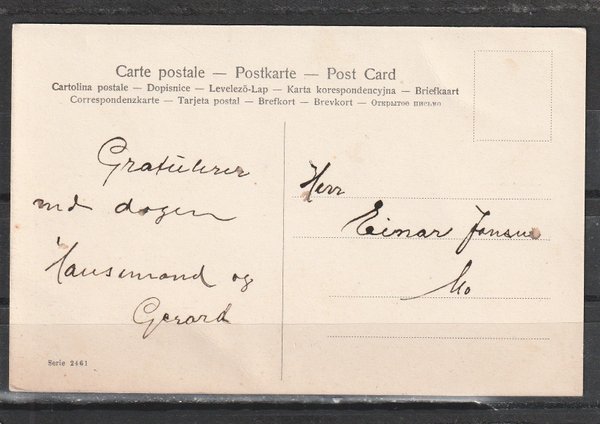 Carte postale — Postkarte — Post Card
Cartolina postale — Dopisnice — Levelező-Lap — Karta korespondencyjna — Briefkaart
Correspondenzkarte — Tarjeta postal — Brefkort — Brevkort — Открытое письмо
Gratulerer
md dagen
og
Gerard
Herr
Einar Jonsen
Mo
Serie 2461